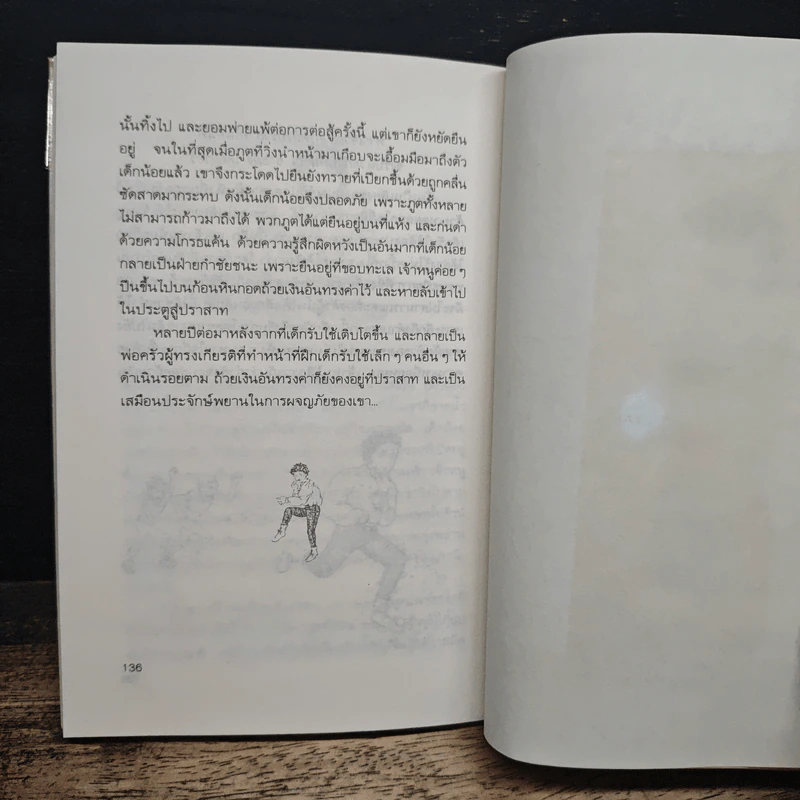 นั้นทิ้งไป และยอมพ่ายแพ้ต่อการต่อสู้ครั้งนี้ แต่เขาก็ยังหยัดยืน
อยู่ จนในที่สุดเมื่อภูตที่วิ่งนำหน้ามาเกือบจะเอื้อมมือมาถึงตัว
เด็กน้อยแล้ว เขาจึงกระโดดไปยืนยังทรายที่เปียกชื้นด้วยถูกคลื่น
ซัดสาดมากระทบ ดังนั้นเด็กน้อยจึงปลอดภัย เพราะภูตทั้งหลาย
ไม่สามารถก้าวมาถึงได้ พวกภูตได้แต่ยืนอยู่บนที่แห้ง และก่นด่า
ด้วยความโกรธแค้น ด้วยความรู้สึกผิดหวังเป็นอันมากที่เด็กน้อย
กลายเป็นฝ่ายกำชัยชนะ เพราะยืนอยู่ที่ขอบทะเล เจ้าหนูค่อย ๆ
ปีนขึ้นไปบนก้อนหินกอดถ้วยเงินอันทรงค่าไว้ และหายลับเข้าไป
ในประตูสู่ปราสาท
หลายปีต่อมาหลังจากที่เด็กรับใช้เติบโตขึ้น และกลายเป็น
พ่อครัวผู้ทรงเกียรติที่ทำหน้าที่ฝึกเด็กรับใช้เล็ก ๆ คนอื่น ๆ ให้
ดำเนินรอยตาม ถ้วยเงินอันทรงค่าก็ยังคงอยู่ที่ปราสาท และเป็น
เสมือนประจักษ์พยานในการผจญภัยของเขา...
136